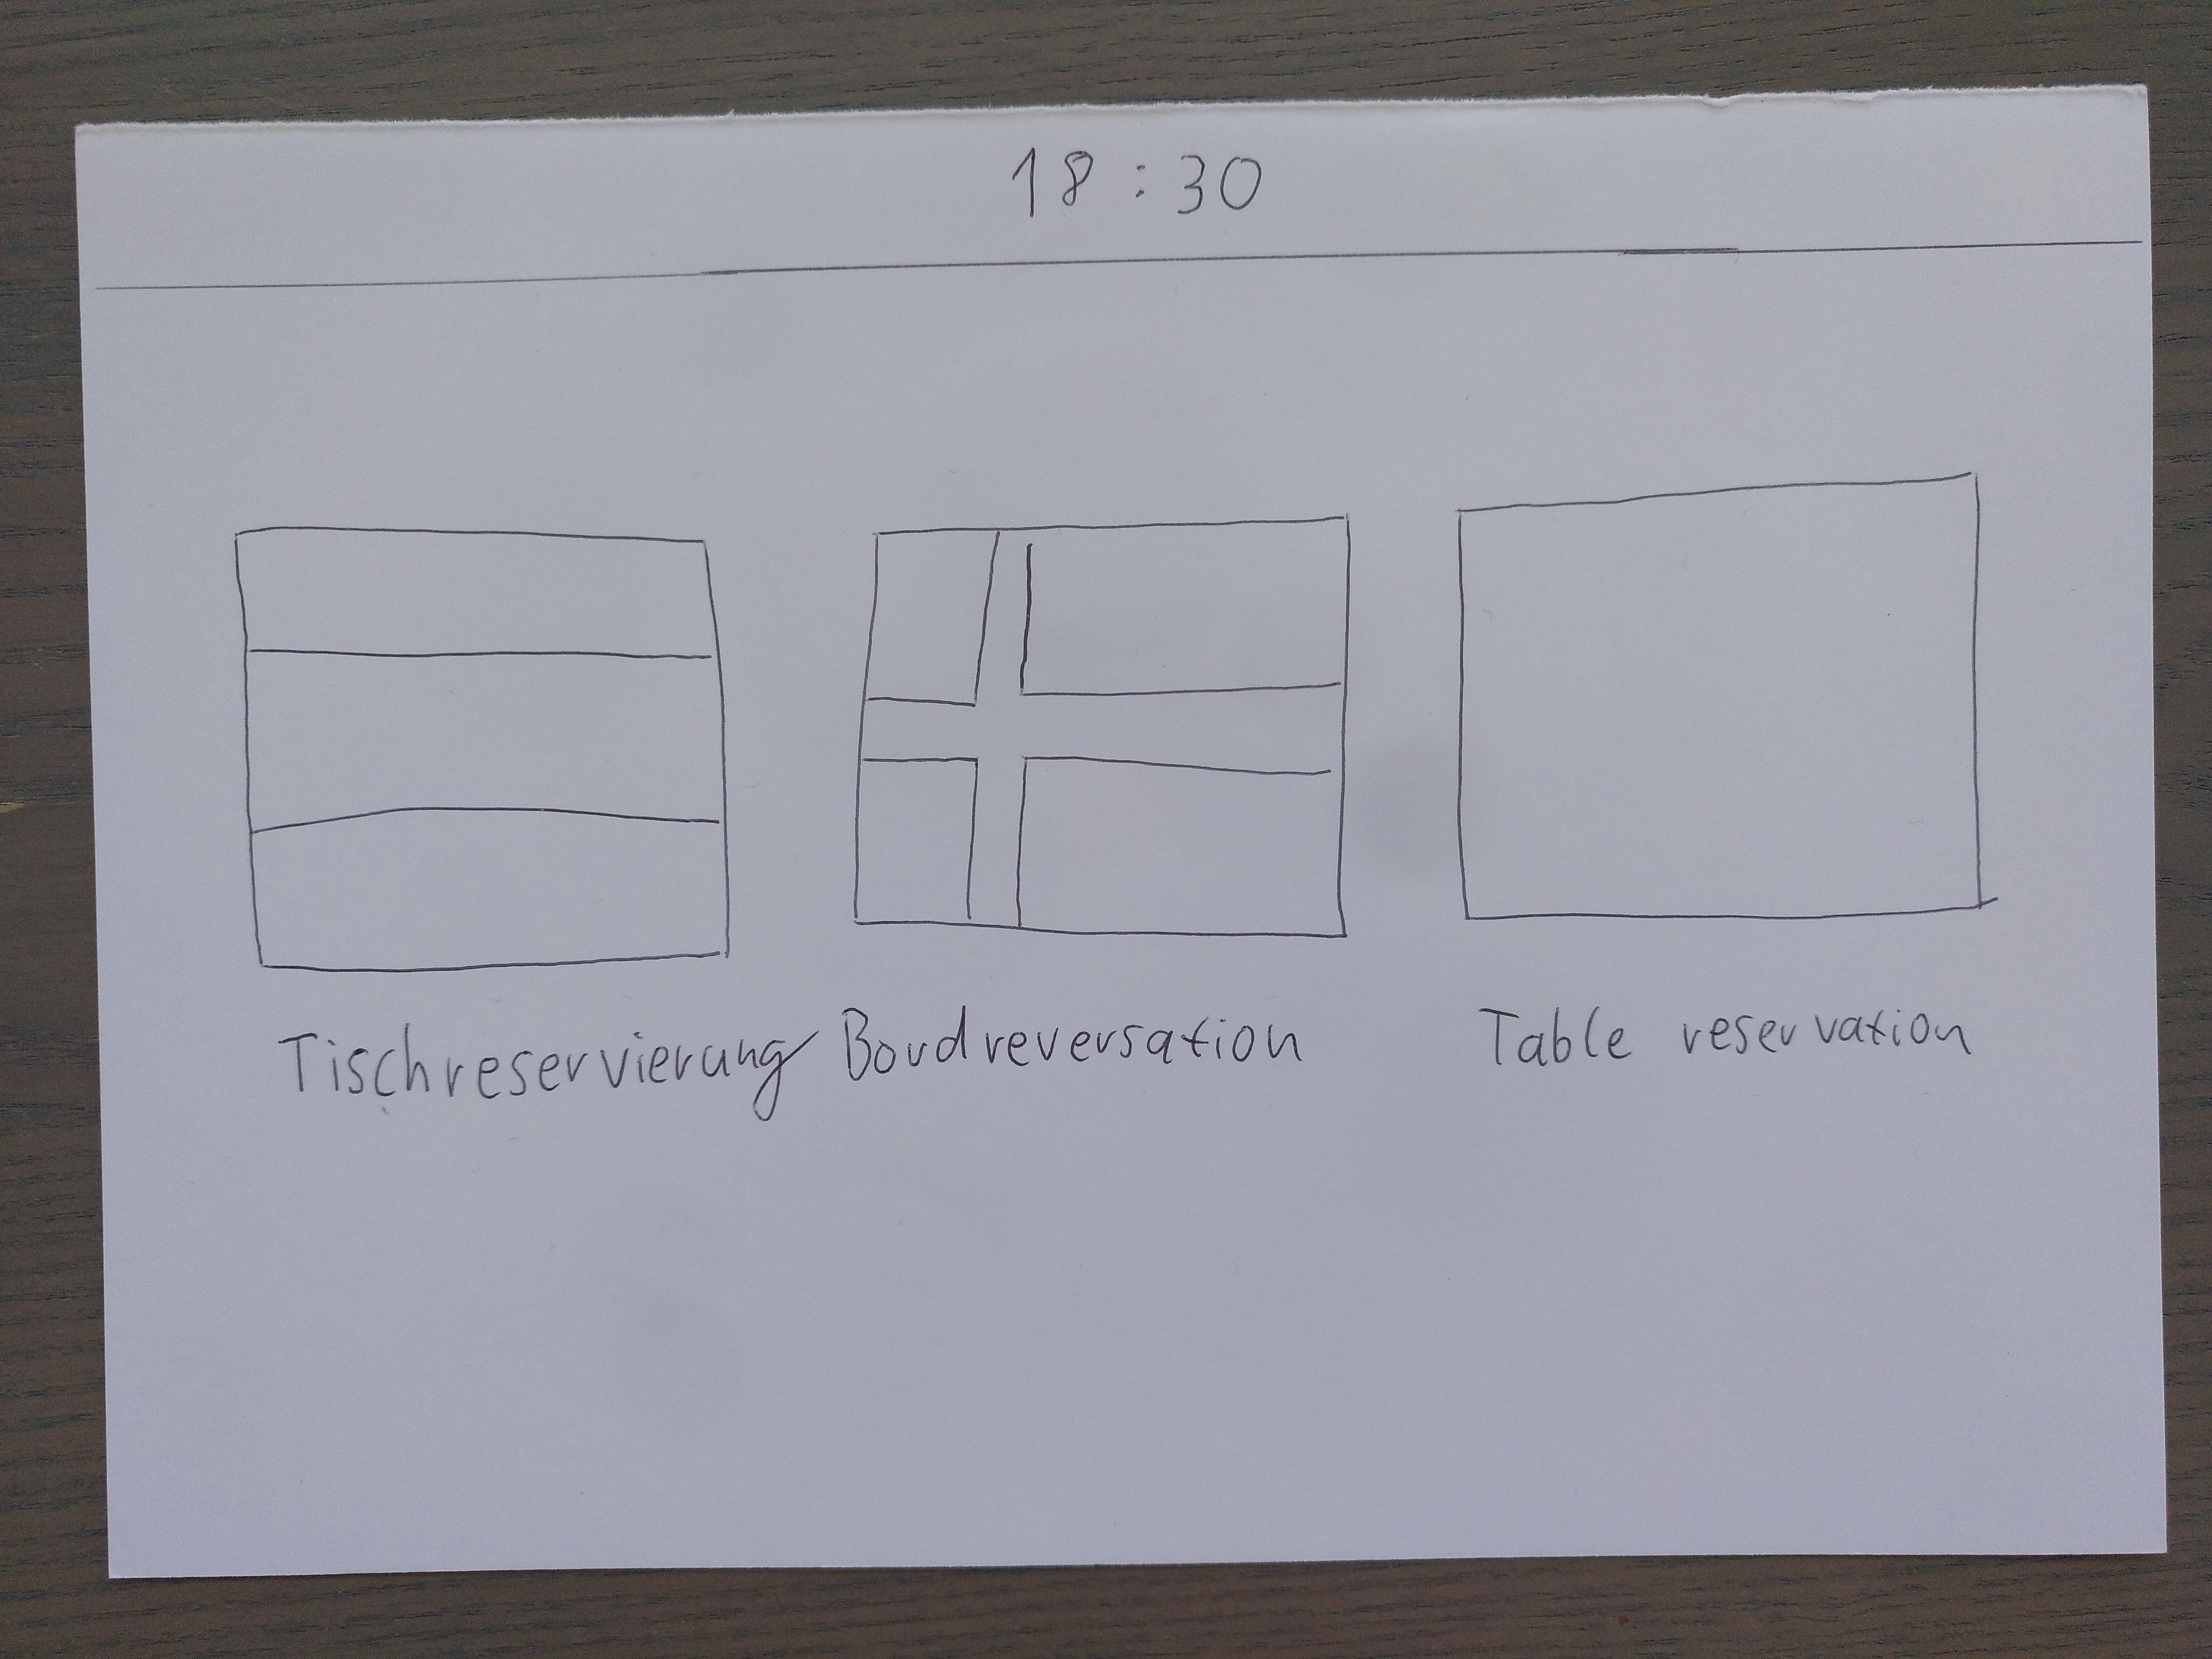 18:30
Tischreservierung Bordreversation Table reservation